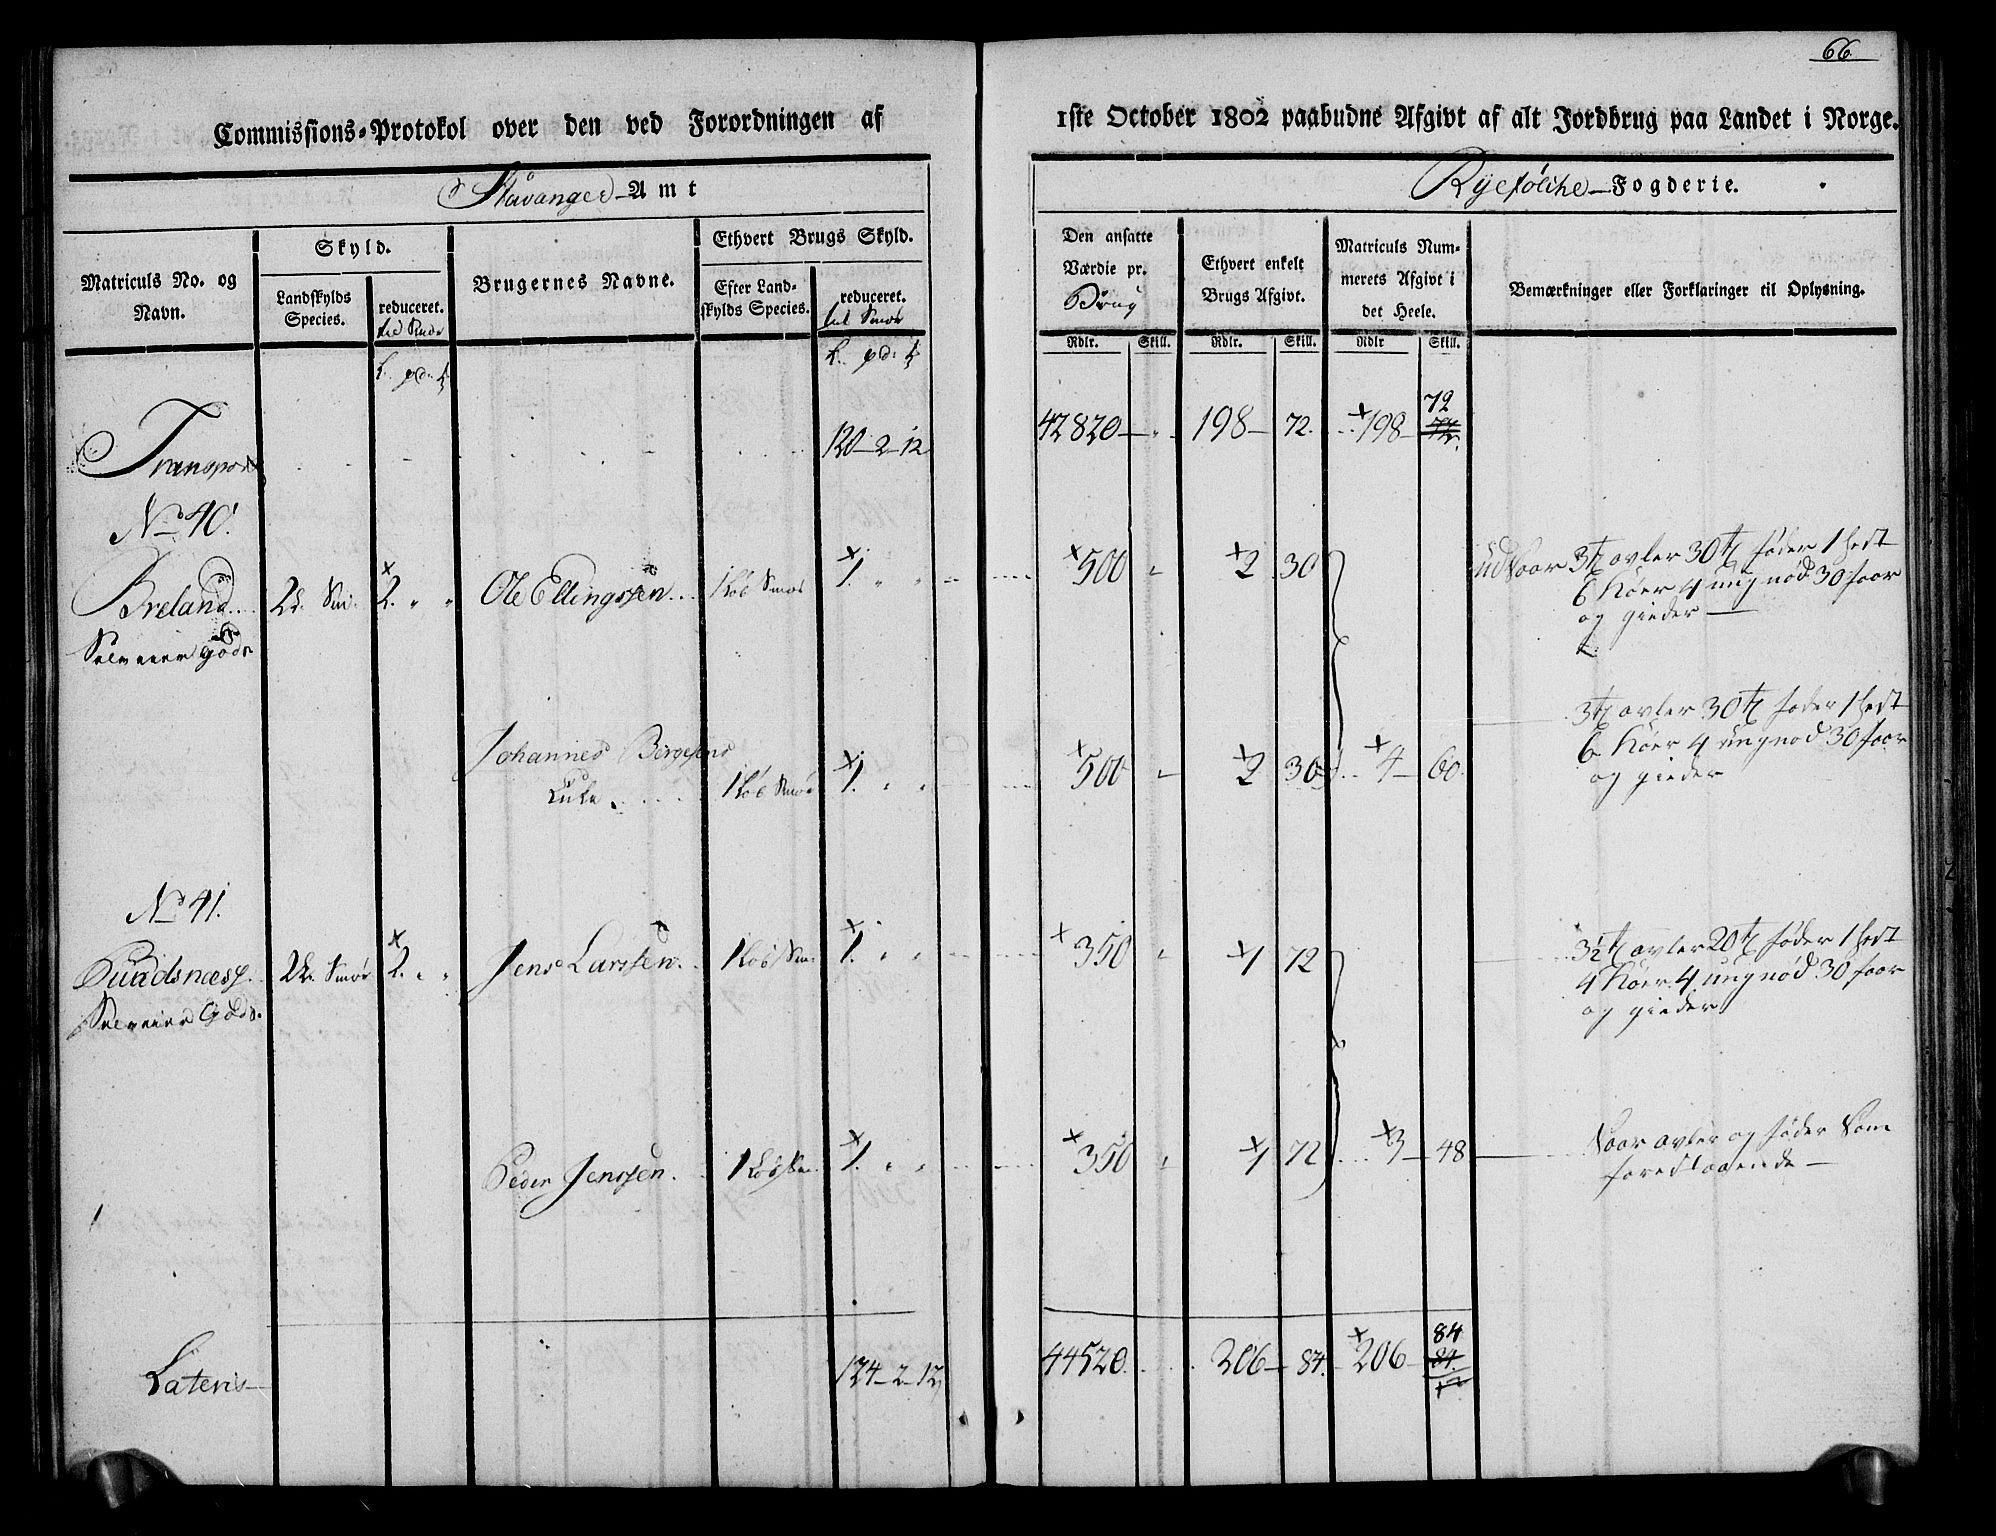 66
Commissions-Protokol over den ved Forordningen af 1ste October 1802 paabudne Afgivt af alt Jordbrug paa Landet i Norge.
Stavanger Amt
Ryefølche Fogderie.
Matriculs No. og Navn.
Skyld.
Landskylds Species.
reduceret.
Brugernes Navne.
Ethvert Brugs Skyld.
Efter Landskylds Species.
reduceret. til Smør
Den ansatte Værdie pr. Brug
Ethvert enkelt Brugs Afgivt.
Matriculs Nummerets Afgivt i det Heele.
Bemærkninger eller Forklaringer til Oplysning.
Rdlr. Skill. Rdlr. Skill. Rdlr Skill.
Transport 120 - 2 - 12 42820 198 - 72. 198 - 72
No 40.
Breland 2. Ole Ellingssen 1 Løb Smør 1. 500 2 30 3 avler 30 føder 1 hest
6 Køer 4 ungnød 30 faar
og gieder
Selveier Gods
Johannes Børgesens 3 avler 30 føder 1 hest
1 Løb Smør 1. 500 2 30 4 - 60. 6 Køer 4 ungnød 30 faar
og gieder
No 41.
2 Smør 2. Jens Larssen 1 Løb Sm. 1. 350 1 72 3½ avler 20 føder 1 hest
Selveier Gods. 4 Køer 4 ungnød 30 faar
og gieder
Peder Jenssen. 1 Løb Sm. 1. 350 1 72 3 - 48 Saar avler og føder Som
forestaaende
Lateris 124 - 2 - 12 44520. 206 - 84. 206 84